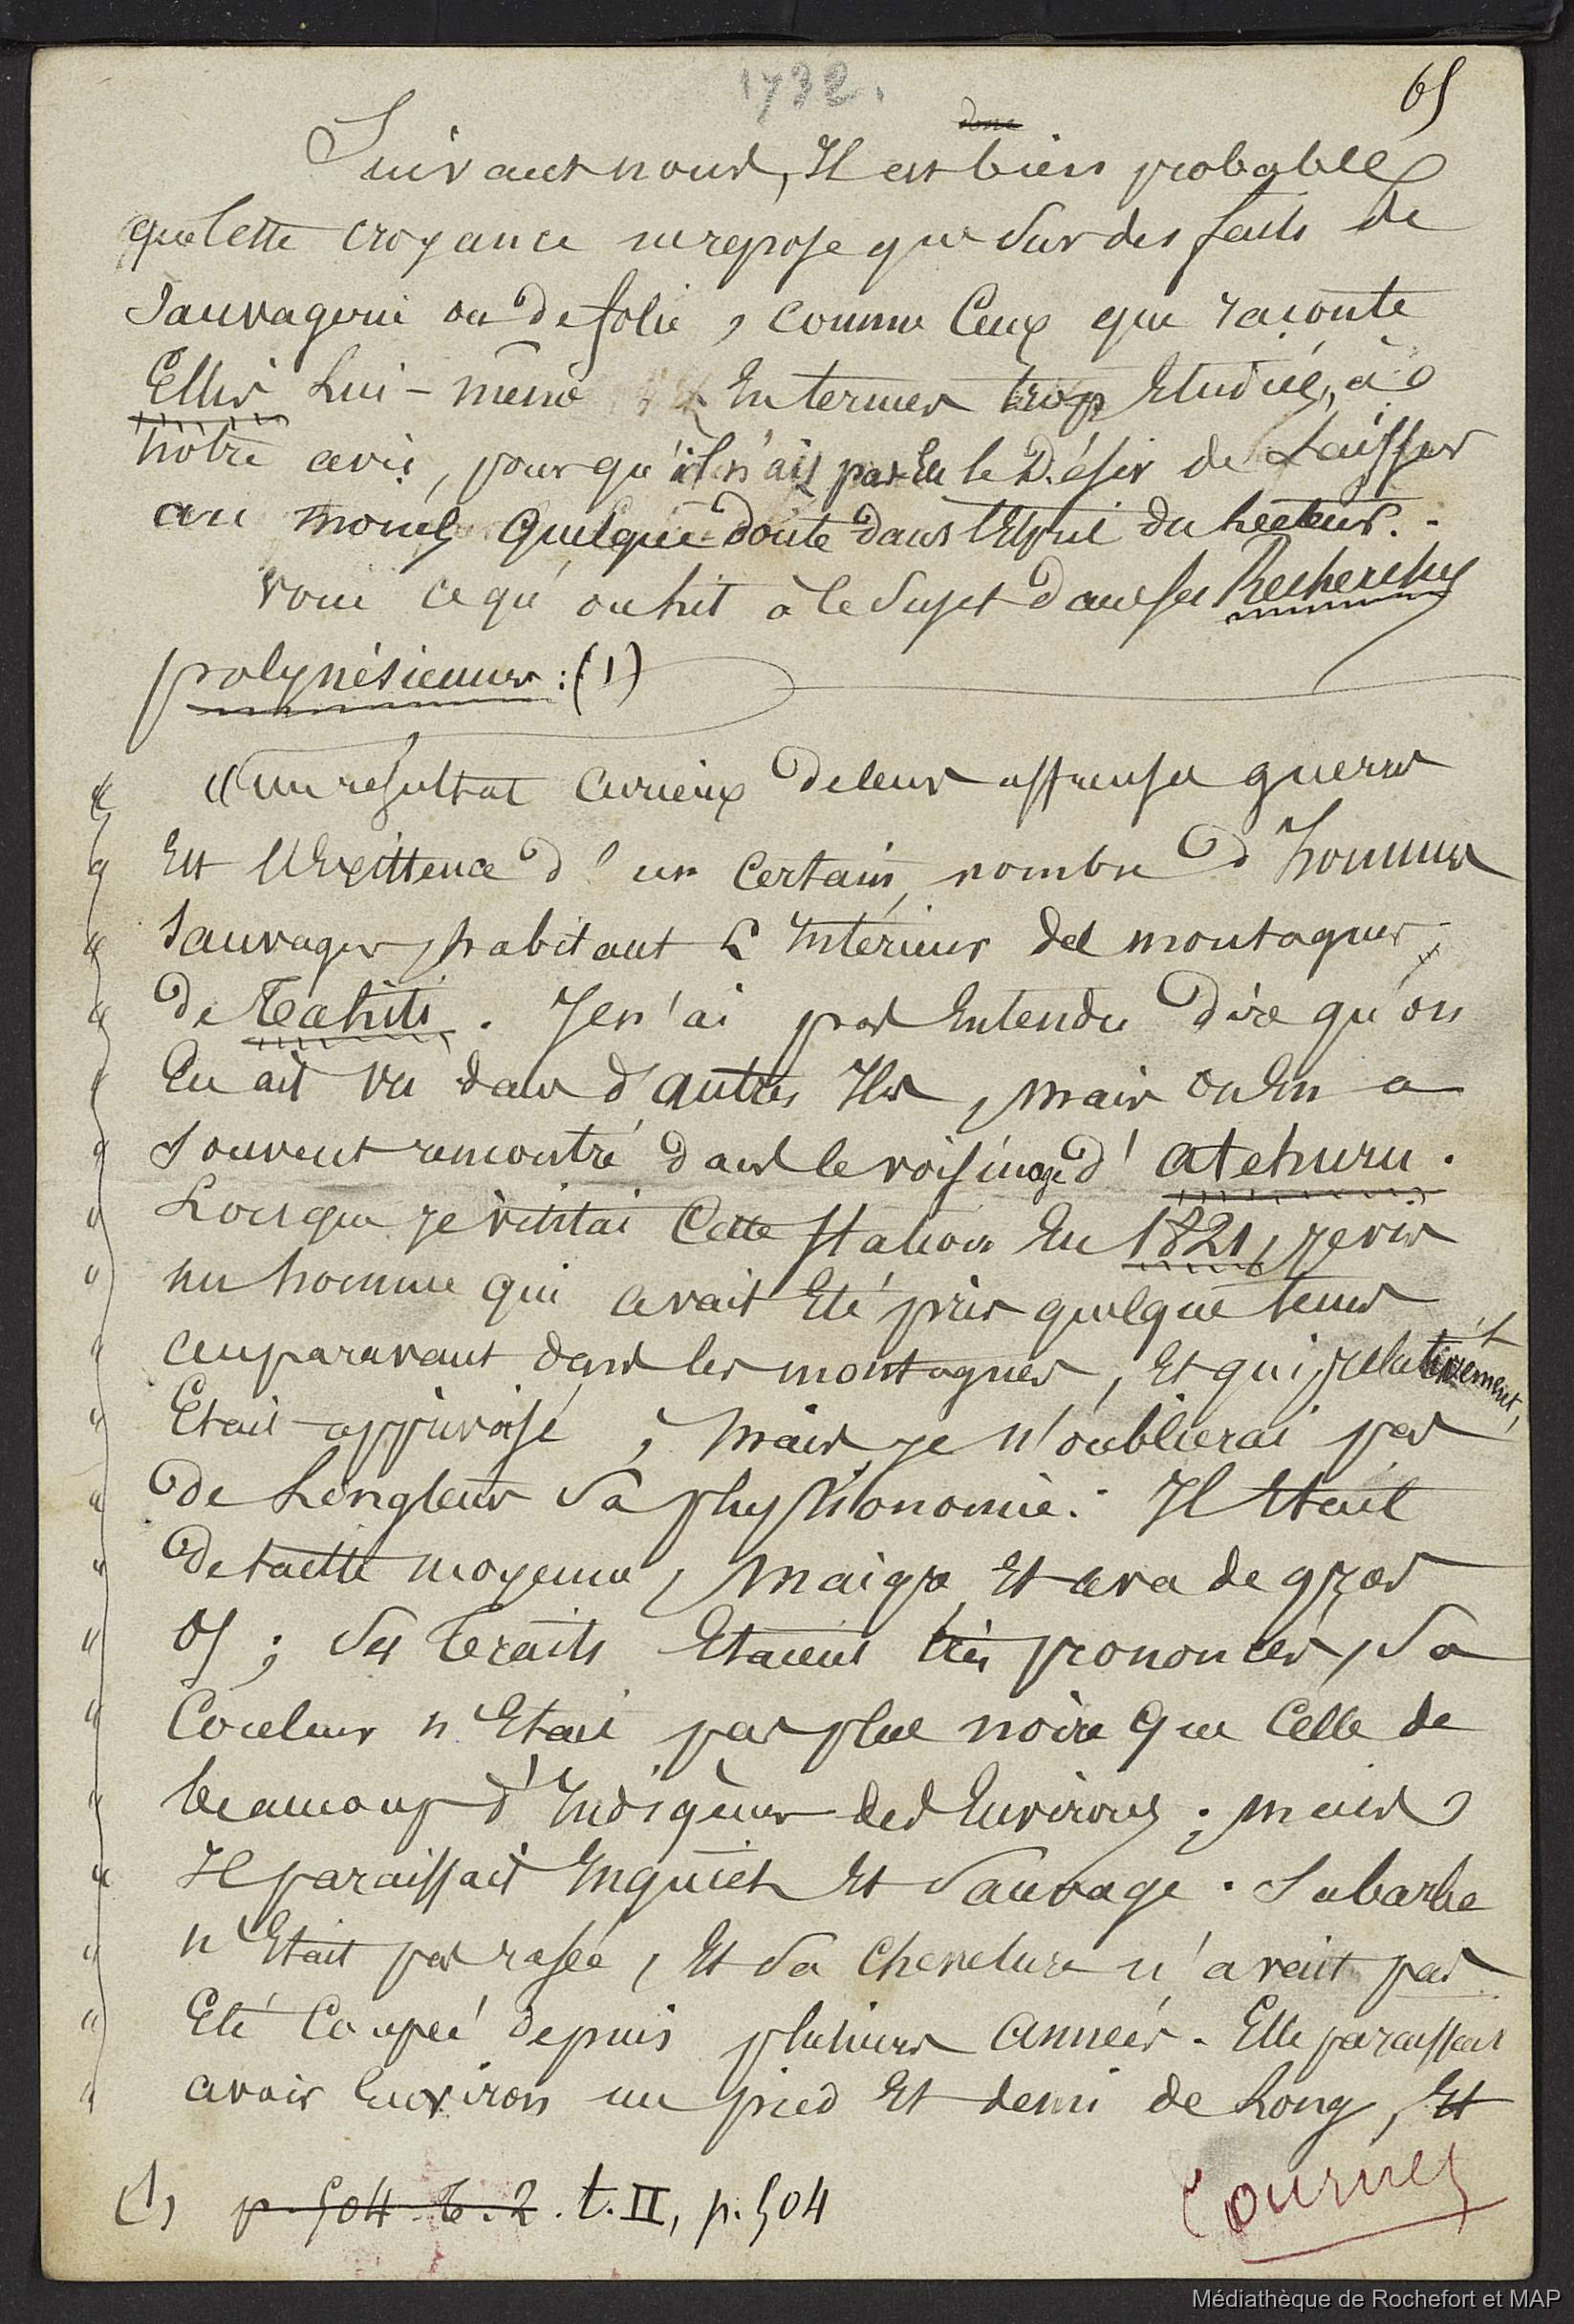 1732.
65
donc
Suivant nous, Il est bien probable
que cette croyance ne repose que sur des faits de
sauvagerie ou de folie, comme ceux que raconte
Ellis lui-même En termes trop Etudiés, à
notre avis, pour qu'il n'ait pas Eu le Désir de laisser
au moins quelque doute dans l'Esprit du lecteur.
Voici ce qu'on lit à ce sujet dans ses Recherches
polynésiennes : (1)
« un résultat curieux de leurs affreuses guerres
« Est l'Existence d'un certain nombre d'hommes
« sauvages, habitant l'Intérieur des montagnes
« de Tahiti. Je n'ai pas Entendu dire qu'on
« En ait vu dans d'autres Iles, mais on En a
« souvent rencontré dans le voisinage d'atehuru.
« Lorsque je visitai cette station En 1821, je vis
« un homme qui avait Eté pris quelque tems
« auparavant dans les montagnes, Et qui, relativement,
« Etait apprivoisé ; mais je n'oublierai pas
« de longtems sa physionomie. Il Etait
« de taille moyenne, maigre Et avec de gros
« os ; ses traits Etaient très prononcés, sa
« couleur n'Etait pas plus noire que celle de
« beaucoup d'Indigènes des Environs ; mais
« Il paraissait Inquiet Et sauvage. Sa barbe
« n'Etait pas rasée, Et sa chevelure n'avait pas
« Eté coupée depuis plusieurs années. Elle paraissait
« avoir Environ un pied Et demi de long, Et
(1) p. 504 t. 2. t. II, p. 504
Tournez
Médiathèque de Rochefort et MAP